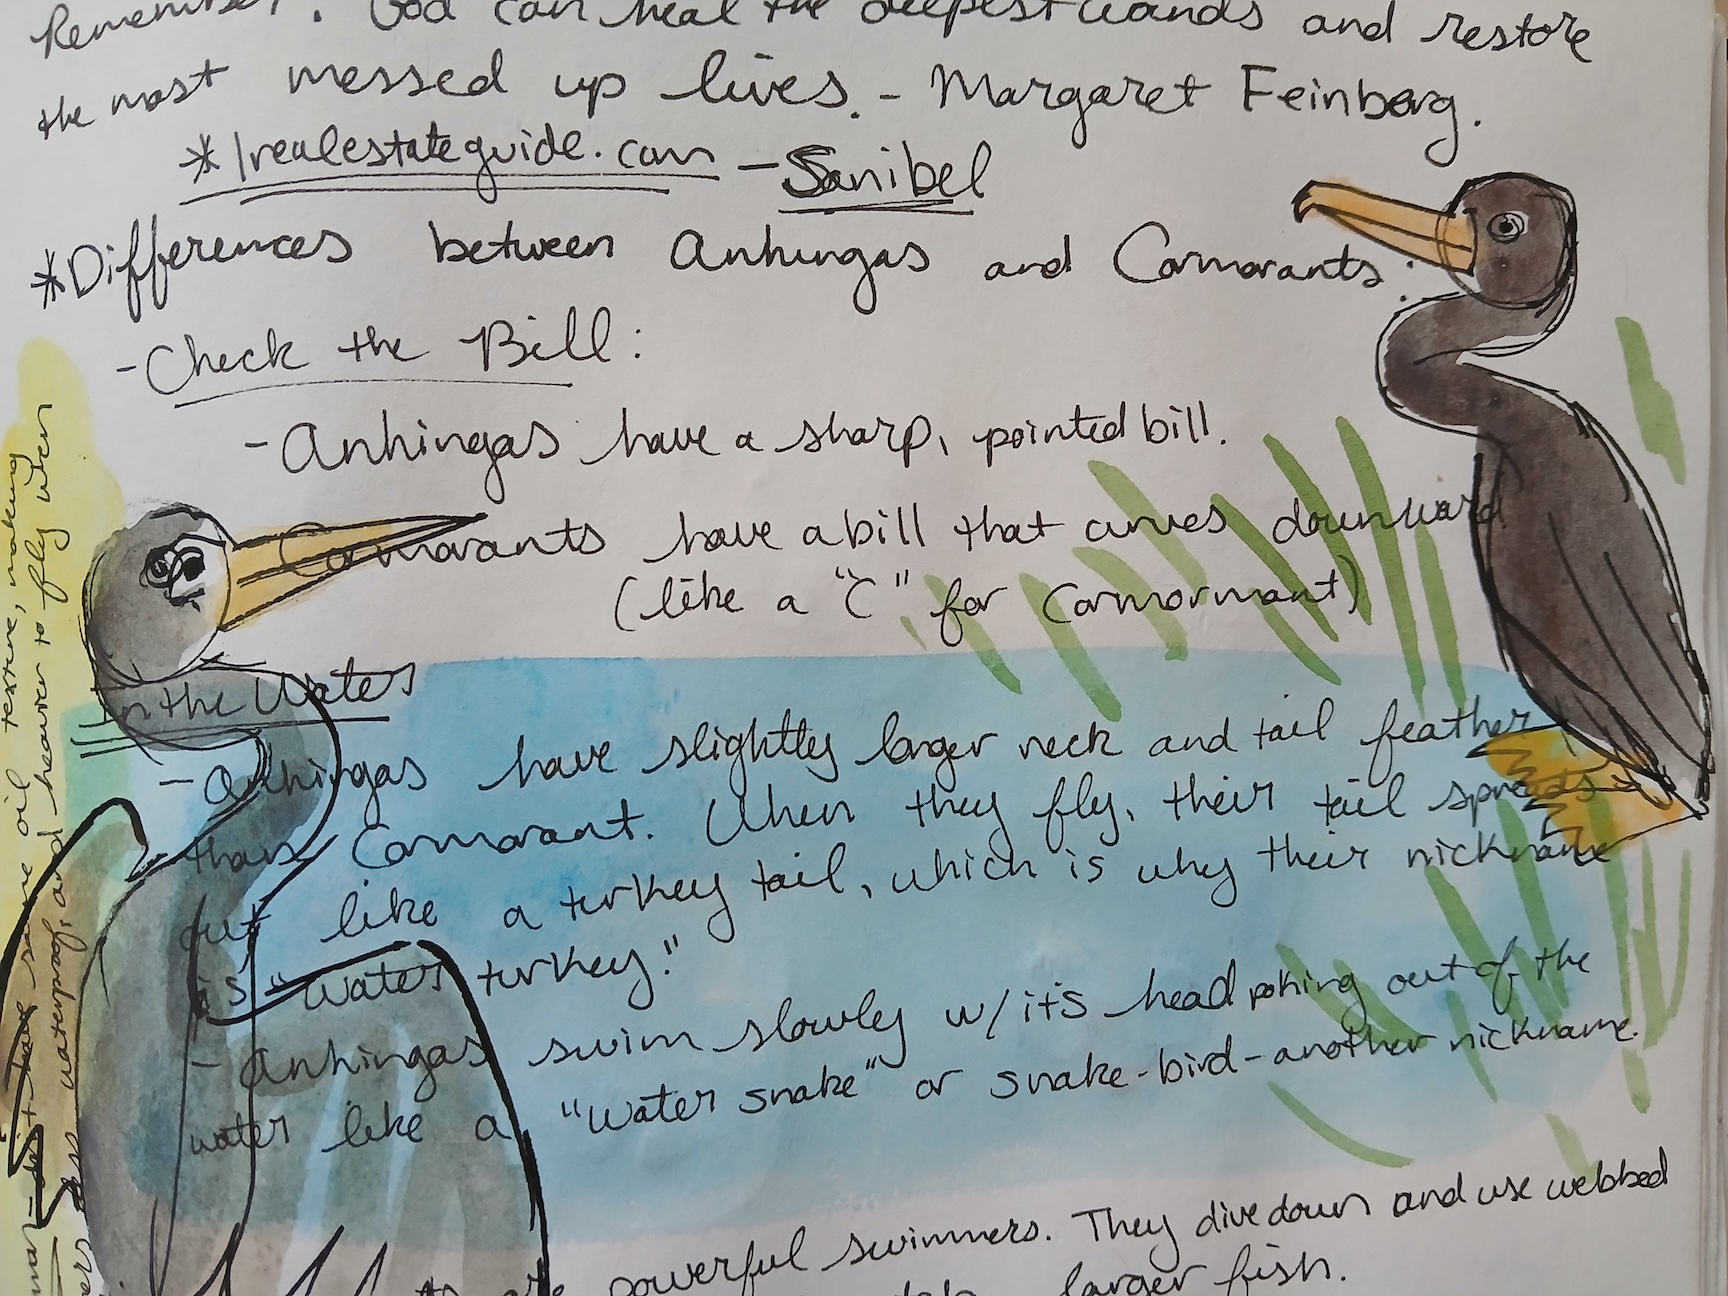 Remember: God can heal the deepest wounds and restore
the most messed up lives. - Margaret Feinberg.
*1realestateguide.com - Sanibel
*Differences between Anhingas and Cormorants:
- Check the Bill:
- Anhingas have a sharp, pointed bill.
Cormorants have a bill that curves downward
(like a "C" for Cormormant)
In the Water
- Anhingas have slightly larger neck and tail feather
than Cormorant. When they fly, their tail spreads
out like a turkey tail, which is why their nickname
is "water turkey."
- Anhingas swim slowly w/ it's head poking out of the
water like a "water snake" or snake-bird-another nickname.
are powerful swimmers. They dive down and use webbed
larger fish.
have some oil texture, making
waterproof, and heavier to fly when